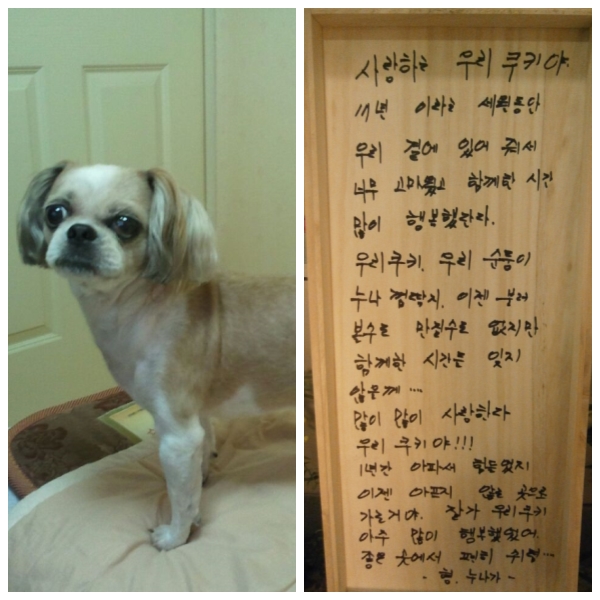 사랑하는 우리 쿠키야.
11년 이라는 세월동안
우리 곁에 있어 줘서
너무 고마웠고 함께한 시간
많이 행복했단다.
우리쿠키, 우리 순둥이
누나 껌딱지, 이젠 불러
볼수도 만질수도 없지만
함께한 시간은 잊지
않을께...
많이 많이 사랑한다
우리 쿠키야!!!
1년간 아파서 힘든었지
이젠 아프지 않은 곳으로
가는거야. 잘가 우리쿠키
아주 많이 행복했었어.
좋은 곳에서 편히 쉬렴...
- 형, 누나가 -